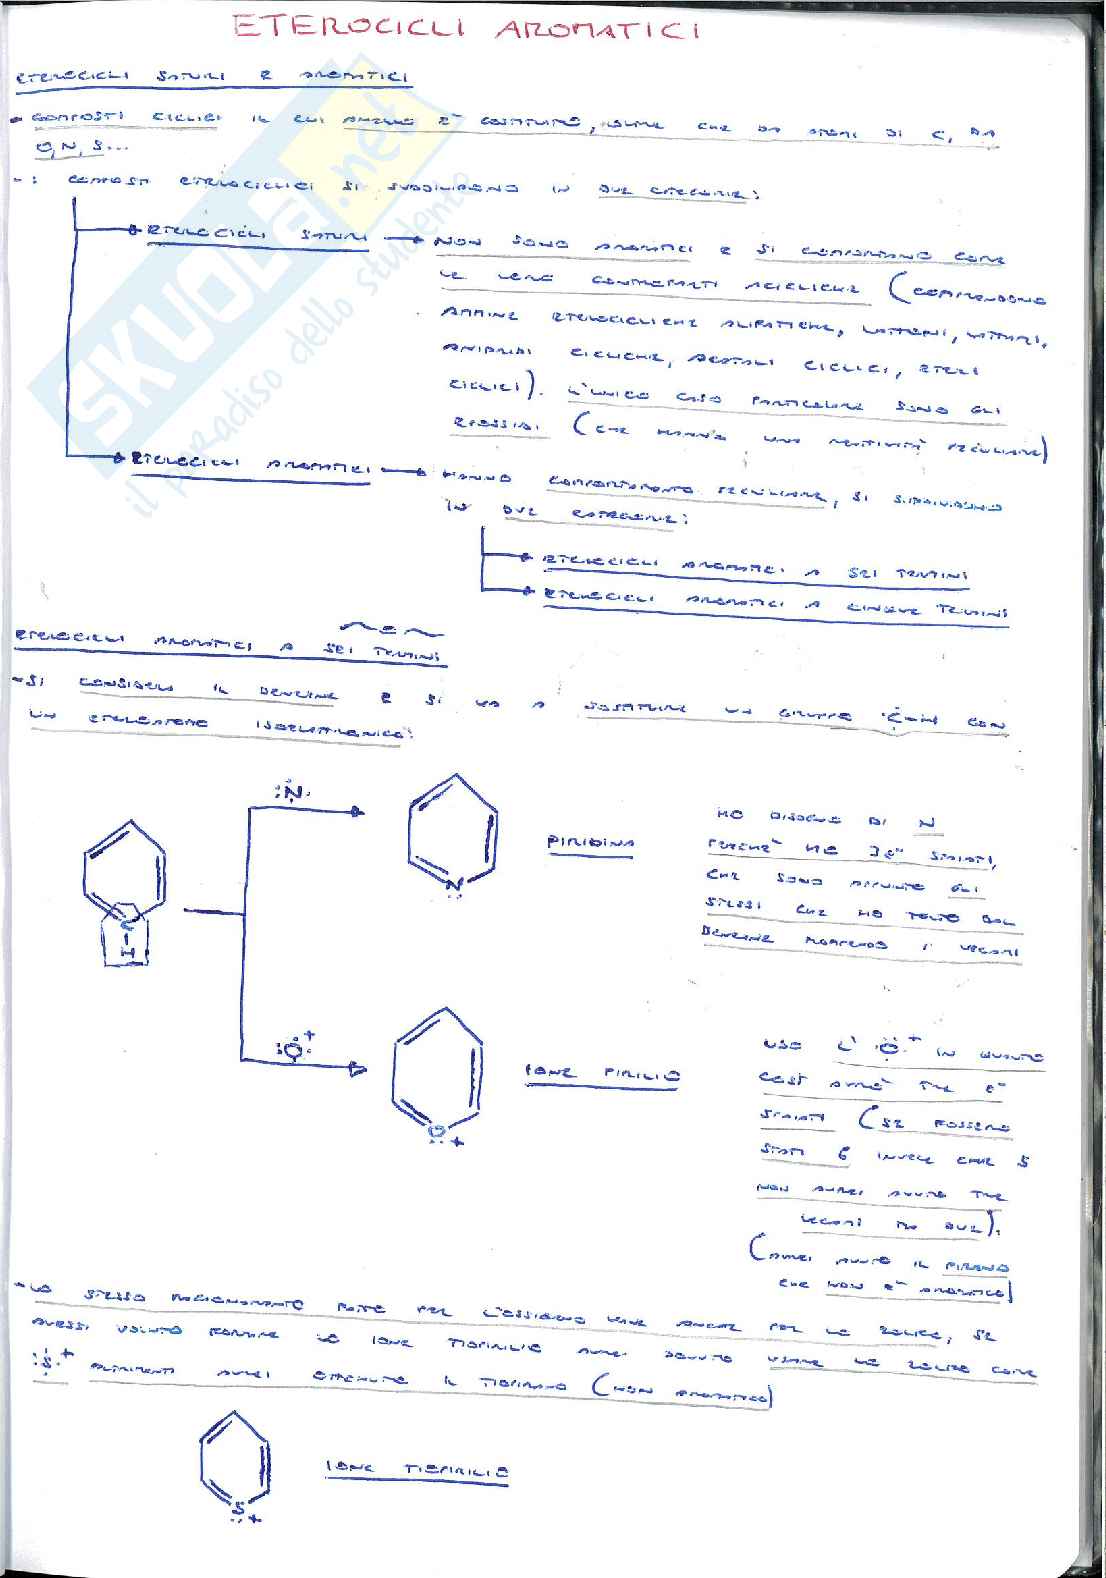 ETEROCICLI AROMATICI
ETEROCICLI SATURI E AROMATICI
- COMPOSTI CICLICI IL CUI ANELLO E' COSTITUITO, OLTRE CHE DA ATOMI DI C, DA
O, N, S...
- I COMPOSTI ETEROCICLICI SI SUDDIVIDONO IN DUE CATEGORIE:
ETEROCICLI SATURI → NON SONO AROMATICI E SI COMPORTANO COME
LE LORO CONTROPARTI ACICLICHE (COMPRENDONO
AMMINE ETEROCICLICHE ALIFATICHE, LATTONI, LATTAMI,
ANIDRIDI CICLICHE, ACETALI CICLICI, ETERI
CICLICI). L'UNICO CASO PARTICOLARE SONO GLI
EPOSSIDI (CHE HANNO UNA REATTIVITÀ PECULIARE)
ETEROCICLI AROMATICI → HANNO COMPORTAMENTO PECULIARE, SI SUDDIVIDONO
IN DUE CATEGORIE:
ETEROCICLI AROMATICI A SEI TERMINI
ETEROCICLI AROMATICI A CINQUE TERMINI
ETEROCICLI AROMATICI A SEI TERMINI
- SI CONSIDERA IL BENZENE E SI VA A SOSTITUIRE UN GRUPPO C-H CON
UN ETEROATOMO ISOELETTRONICO:
:N·
N
PIRIDINA
HO BISOGNO DI N
PERCHÈ HO 3 e⁻ SPAIATI,
CHE SONO APPUNTO GLI
STESSI CHE HO TOLTO DAL
BENZENE ROMPENDO I LEGAMI
C
H
:O·+
O
+
IONE PIRILIO
USO L' O·+ IN QUANTO
COSÌ AVRÀ TRE e⁻
SPAIATI (SE FOSSERO
STATI 6 INVECE CHE 5
NON AVREI AVUTO TRE
LEGAMI MA DUE).
(AVREI AVUTO IL PIRANO
CHE NON E' AROMATICO)
- LO STESSO RAGIONAMENTO FATTO PER L'OSSIGENO VALE ANCHE PER LO ZOLFO, SE
AVESSI VOLUTO FORMARE LO IONE TIOPIRILIO AVREI DOVUTO USARE LO ZOLFO COME
:S·+ ALTRIMENTI AVREI OTTENUTO IL TIOPIRANO (NON AROMATICO)
S
+
IONE TIOPIRILIO
SKUOLA.net
il paradiso dello studente